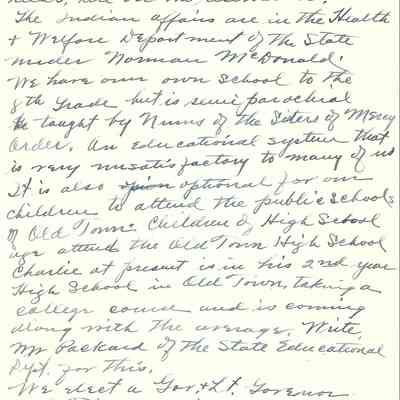 The Indian affairs are in the Health
+ Welfare Department of the State
under Norman McDonald.
We have our own School to the
8th Grade but is semi parochial
taught by Nuns of the Sisters of Mercy
Order. An educational system that
is very unsatisfactory to many of us
It is also optional for our
children to attend the public schools
of Old Town. Children of High School
age attend the Old Town High School
Charlie at present is in his 2nd year
High School in Old Town, taking a
college course and is coming
along with the average. Write
Mr Packard of the State Educational
Dept. for this.
We elect a Gov. & Lt. Govenor